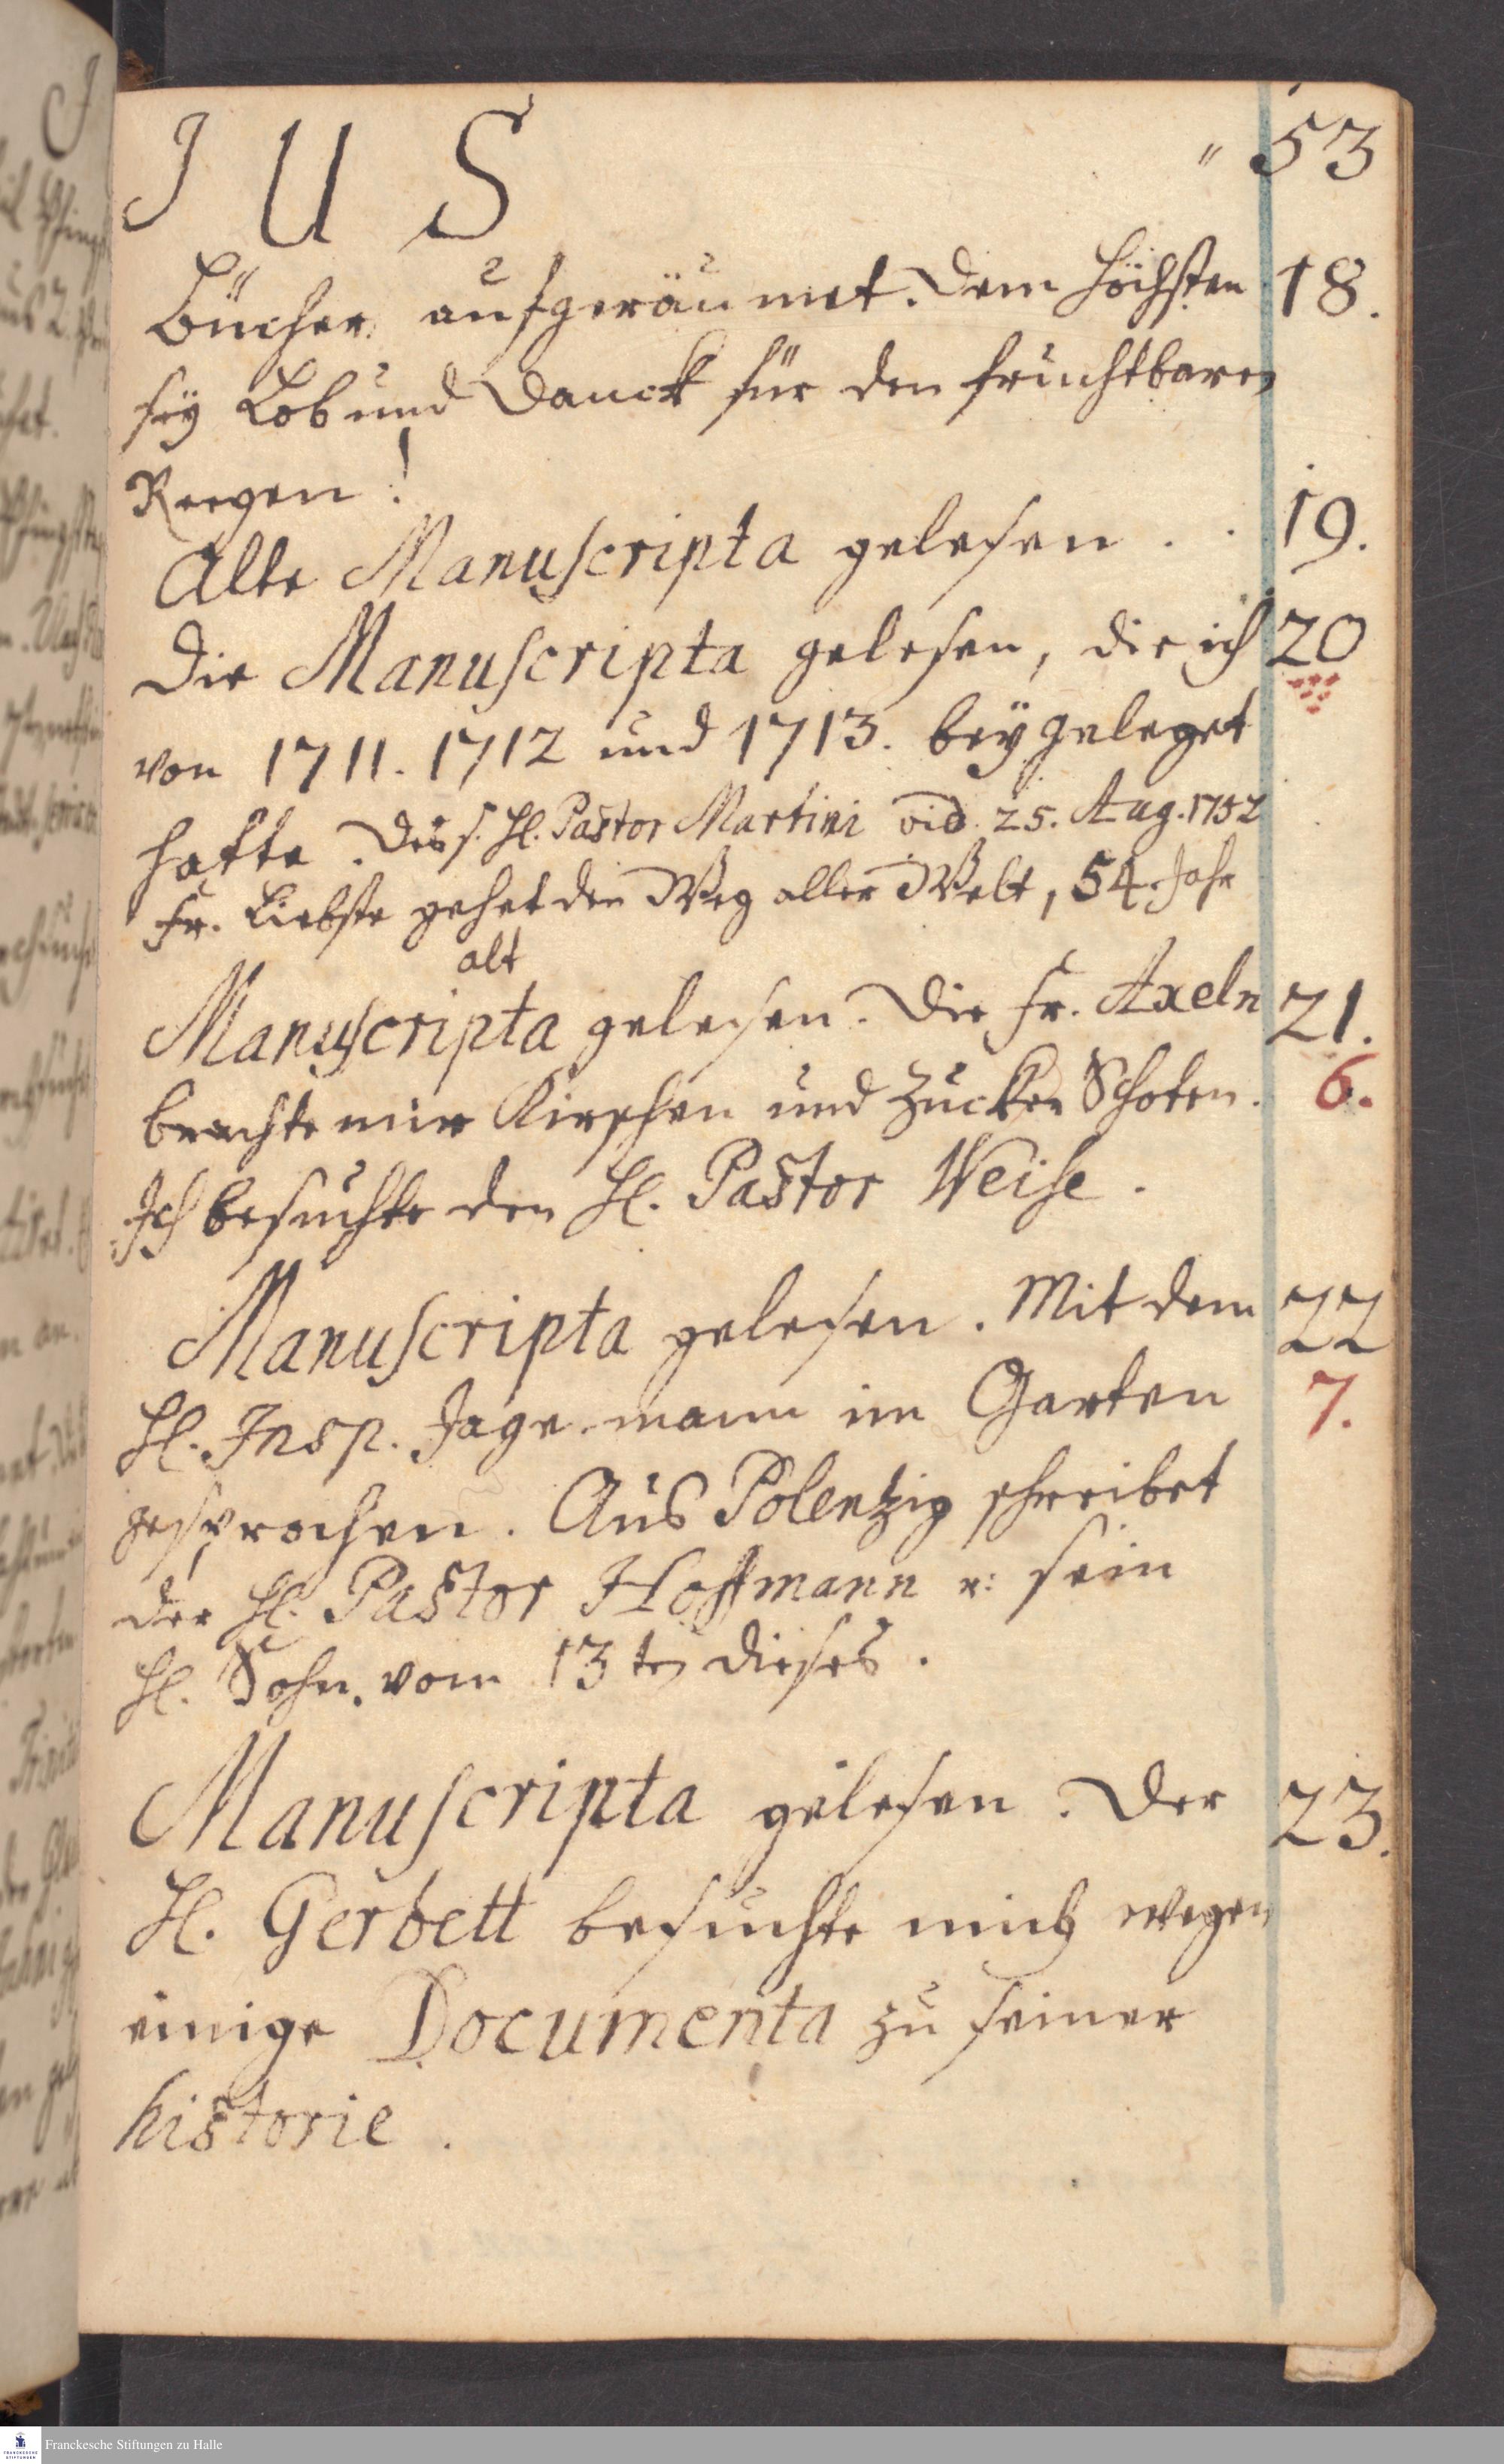 J U S " 53
Bücher aufgeräumet. Dem Höchsten 18.
sey Lob und Danck für den fruchtbaren
Reegen!
Alte Manuscripta gelesen . . 19.
Die Manuscripta gelesen, die ich 20
von 1711. 1712 und 1713. beygeleget
hatte. Des s. H. Pastor Martini vid. 25. Aug. 1752
Fr. Liebste gehet den Weg aller Welt, 54 Jahr
alt
Manuscripta gelesen. Die Fr. Axeln 21.
brachte mir Kirschen und Zucker Schoten. 6.
Ich besuchte den H. Pastor Weise.
Manuscripta gelesen. Mit dem 22
H. Insp. Jagemann im Garten 7.
gesprochen. Aus Polentzig schreibet
der H. Pastor Hoffmann u: sein
H. Sohn. vom 13ten dieses.
Manuscripta gelesen. Der 23.
H. Gerbett besuchte mich wegen
einige Documenta zu seiner
historie.
Franckesche Stiftungen zu Halle